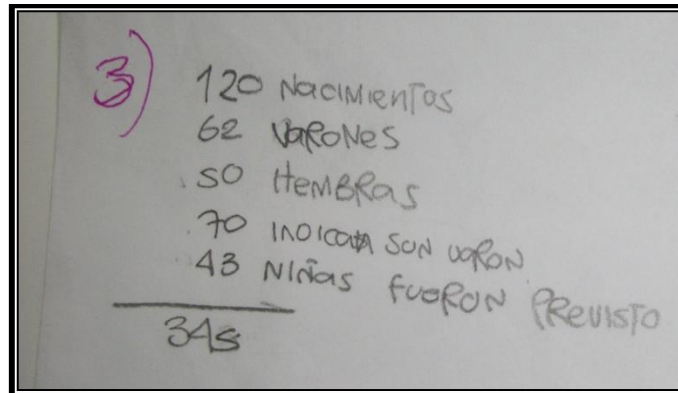 3)
120 NaciMienTos
62 VaRoNes
50 HeMBRas
70 INDICAN SON VARON
43 NIÑas FUERON PREVISTO
345